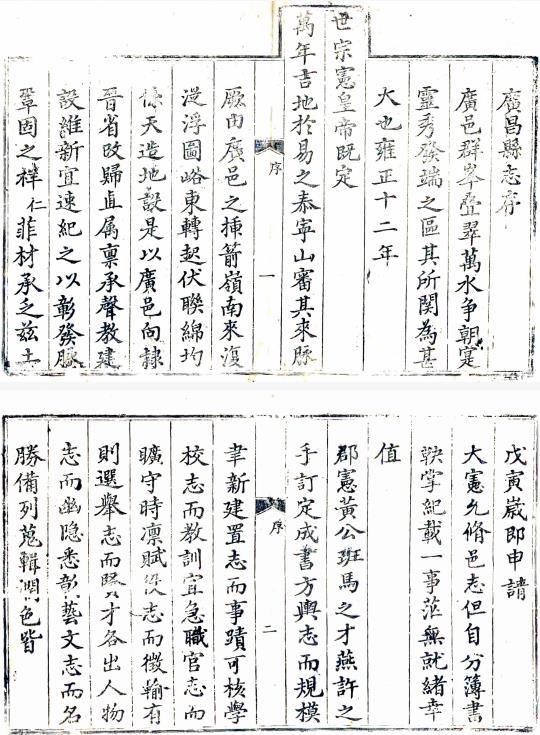 廣昌縣志序
廣邑群峯疊翠萬水争朝寔
靈秀發端之區其所関為甚
大也雍正十二年
世宗憲皇帝既定
萬年吉地於易之泰寧山審其來脉
序 一
厥由廣邑之揷箭嶺南來復
浮圖峪東轉起伏聯綿均
係天造地設是以廣邑向隸
晉省改歸直属禀承聲教建
設維新宜速紀之以彰發脉
鞏固之祥仁菲材承乏兹土
戊寅歳即申請
大憲允脩邑志但自分簿書
鞅掌紀載一事茫無就緒幸
值
郡憲黃公班馬之才燕許之
手訂定成書方輿志而規模
序 二
聿新建置志而事蹟可核學
校志而教訓宜急職官志而
曠守時凛賦役志而徵輸有
則選舉志而賢才各出人物
志而幽隐悉彰藝文志而名
勝備列蒐輯潤色皆